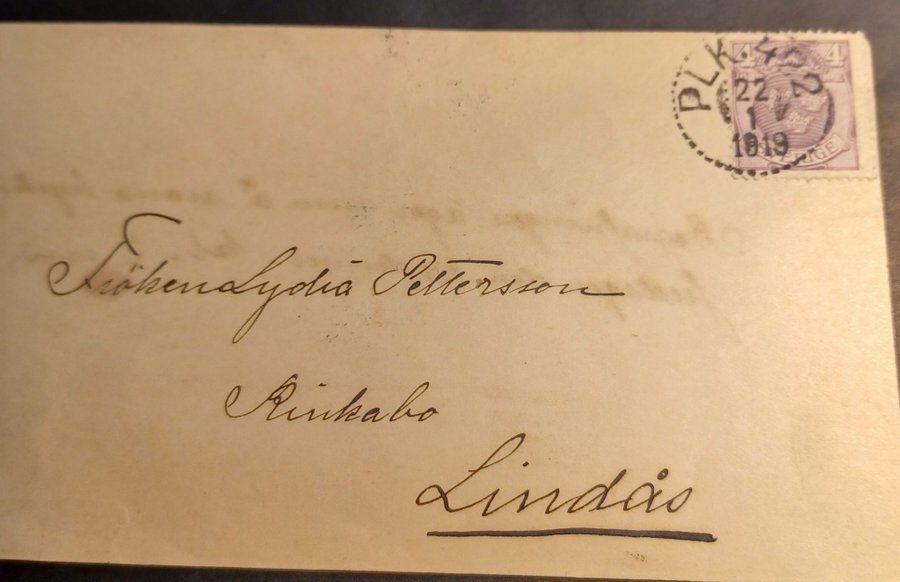 4 4
PLK. 402
22
1
1919
SVERIGE
Fröken Lydia Pettersson
Rinkabo
Lindås